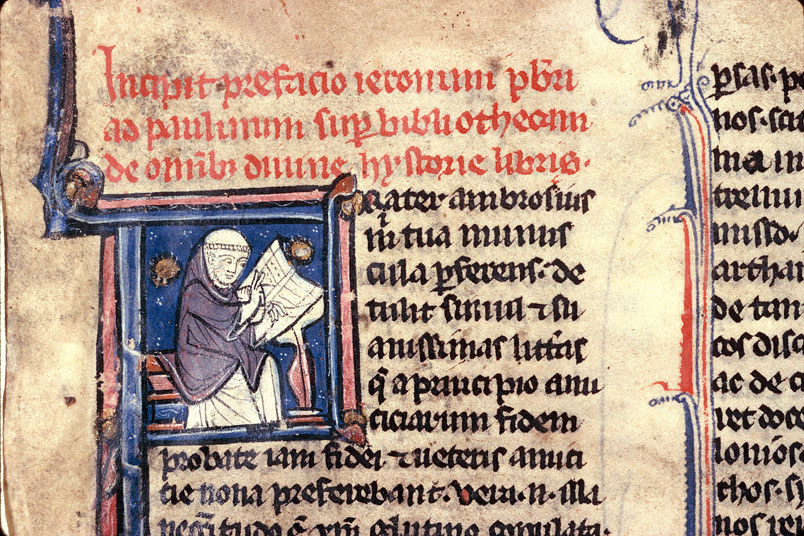 Incipit prefacio ieronimi pbri
ad paulinum sup bibliothecam
de omib; diuine hystorie libris.
rater ambrosius
m tua munus
cula pferens. de
tulit simul ⁊ su
auissimas litt̃as
q̃ a principio ami
ciciarum fidem
probate iam fidei ⁊ ueteris amici
tie noua preferebant. Vera. n. illa
necc̃itudo ẽ. xp̃i glutino copulata.
psas. po
nos. sca
ma in
trem
missd.
artha
de tan
cos disc
ac de c
ret doce
lonios.
thos. s
nos